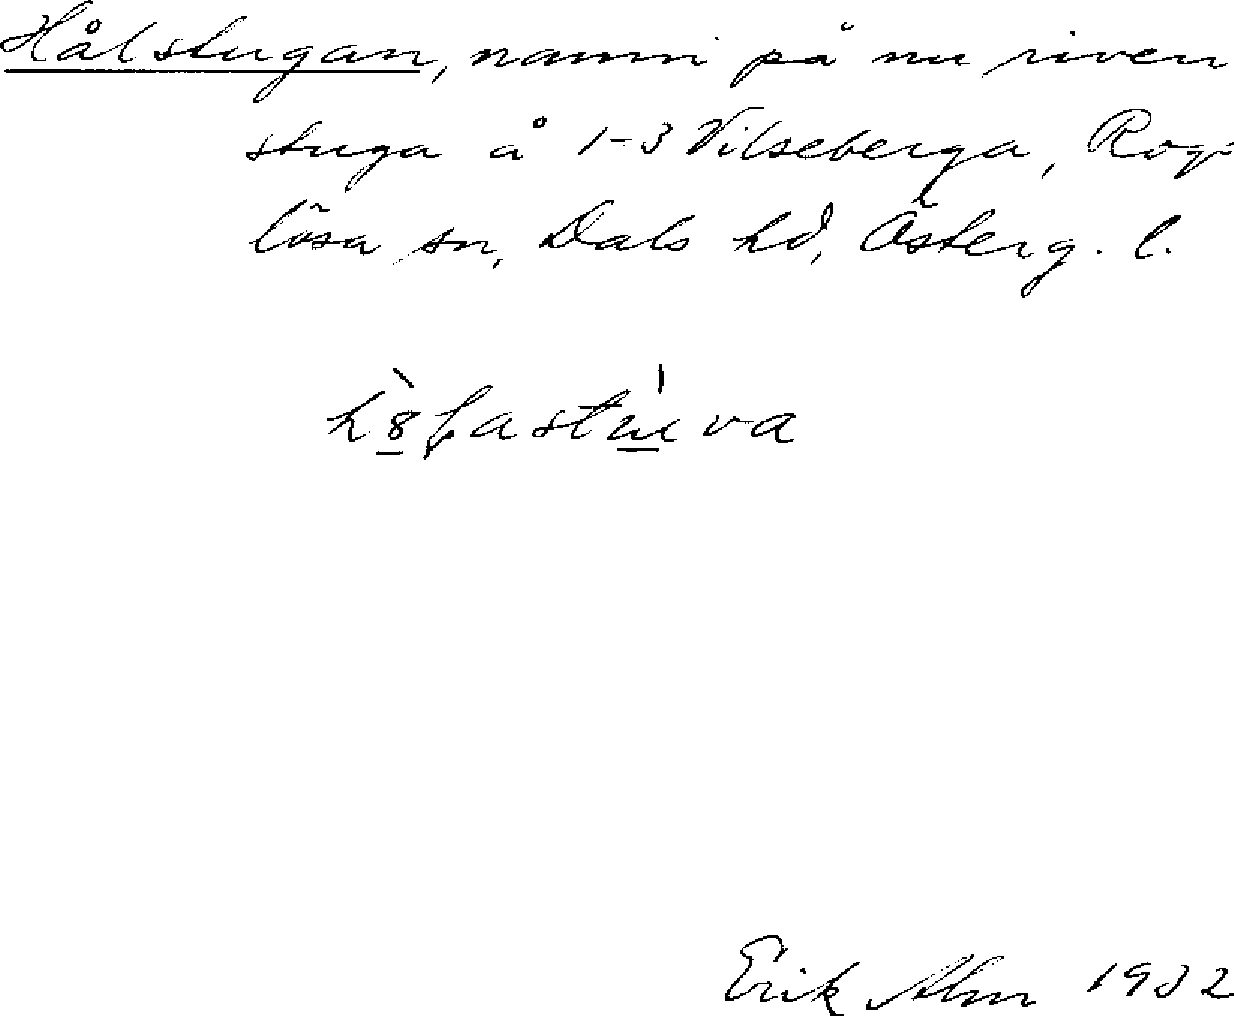 Hålstugan, namn på nu riven
stuga å 1-3 Vilseberga, Rog-
lösa sn, Dals hd, Österg. l.
Erik Alm 1932